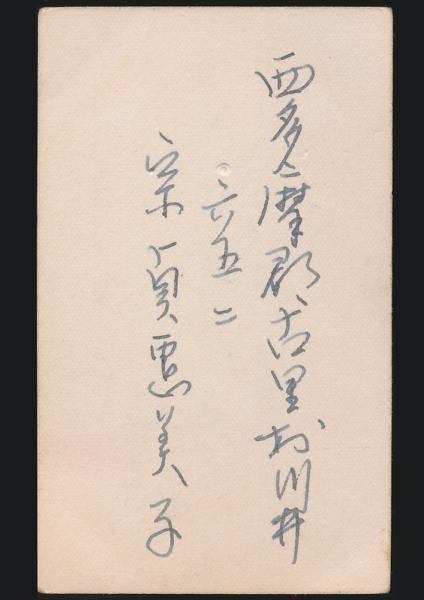 西多摩郡古里村川井
六五二
宗貞恵美子